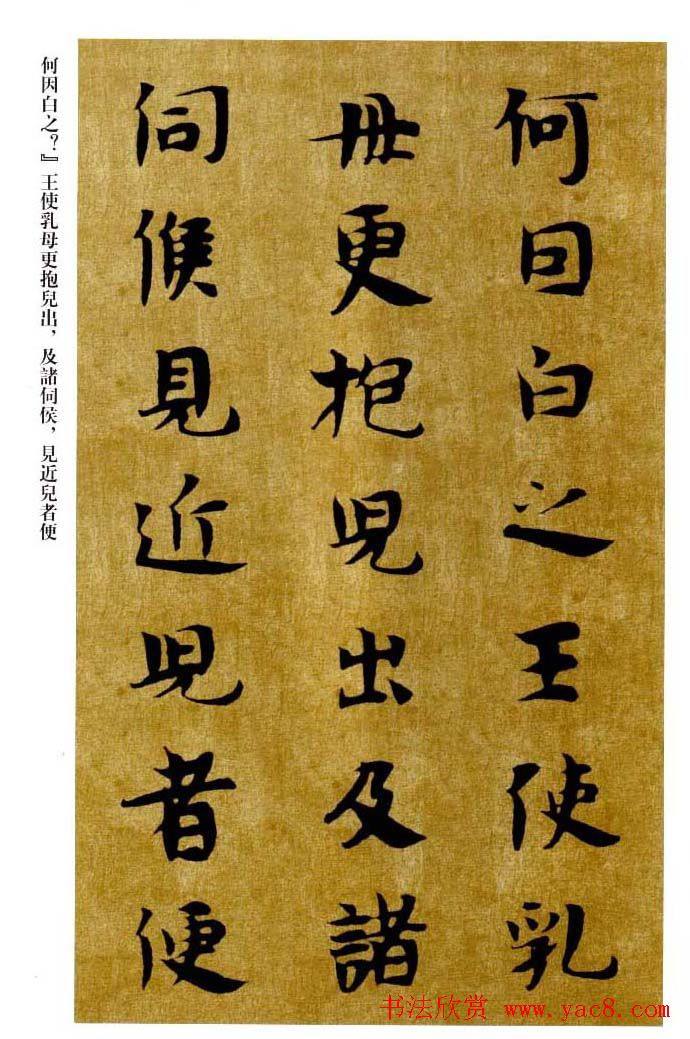 何因白之王使乳
母更抱兒出及諸
伺候見近兒者便
何因白之？』王使乳母更抱兒出，及諸伺侯，見近兒者便
书法欣赏 www.yac8.com